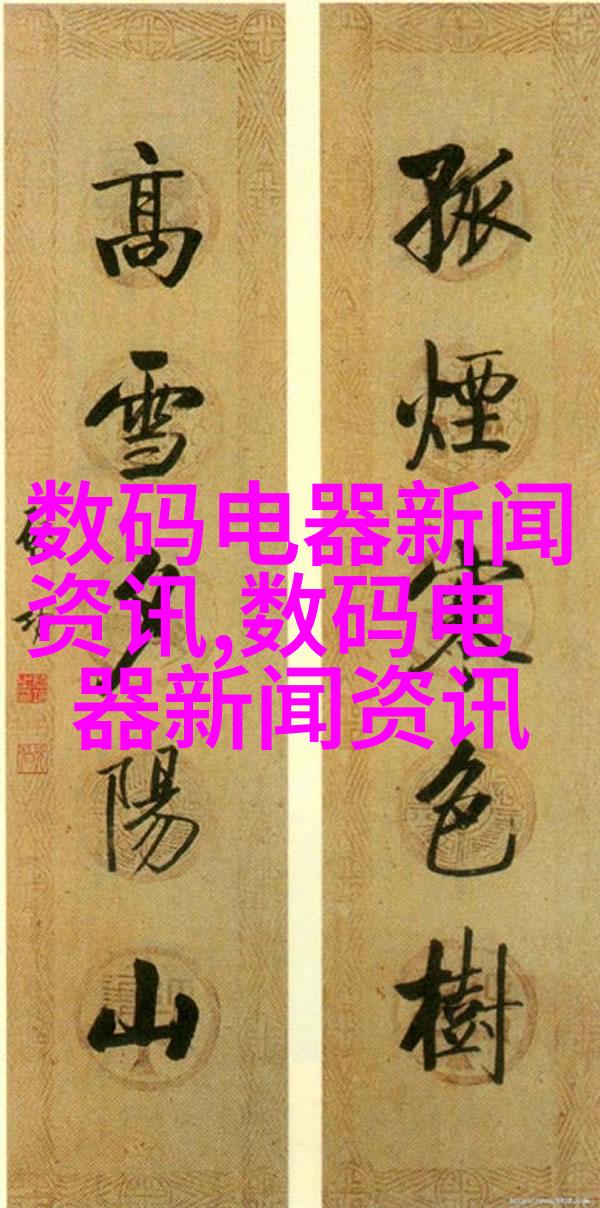 孤煙寒色樹
高雪夕陽山
数码电器新闻
资讯,数码电
器新闻资讯